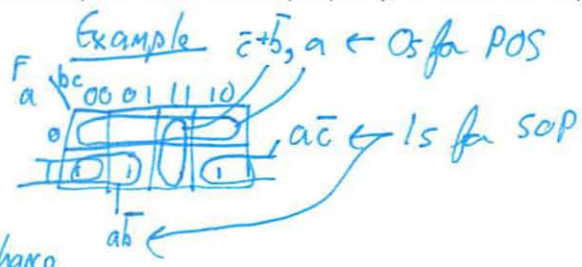 Example c̅+b̅, a ← 0s for POS
F
a \ bc 00 01 11 10
0
1 1 1 1
ac̅ ← 1s for SOP
ab̅